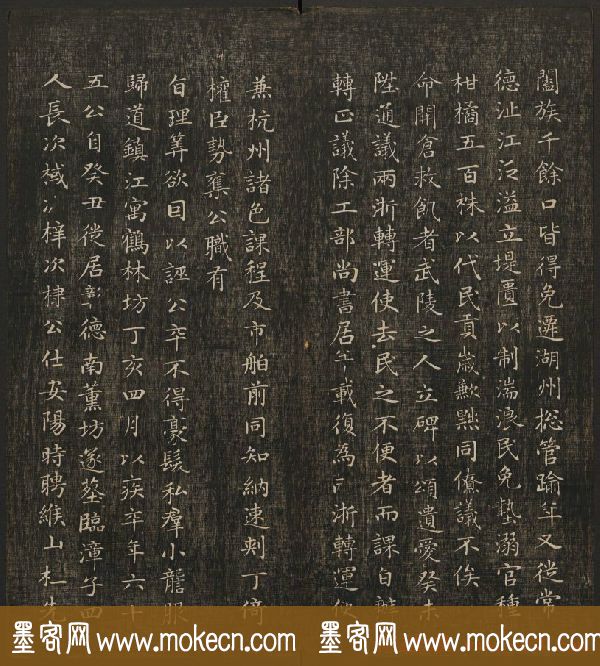 闔族千餘口皆得免遷湖州総管踰年又從常
德沚江泛溢立堤匽以制湍浪民免墊溺官種
柑橘五百株以代民貢歲歉點同僚議不俟
命開倉救飢者武陵之人立碑以頌遺愛癸未
陞通議兩浙轉運使去民之不便者而課自辦
轉正議除工部尚書居年載復為兩浙轉運使
兼杭州諸色課程及市舶前同知納速剌丁倚
權臣勢奪公職有
旨理筭欲囙以誣公卒不得豪髮私群小讋服
歸道鎮江寓鶴林坊丁亥四月以疾卒年六十
五公自癸丑徙居彰德南薰坊遂塟臨漳子四
人長次棫次梓次棣公仕安陽時聘緱山杜先
墨客网 www.mokecn.com 墨客网 www.mokecn.com